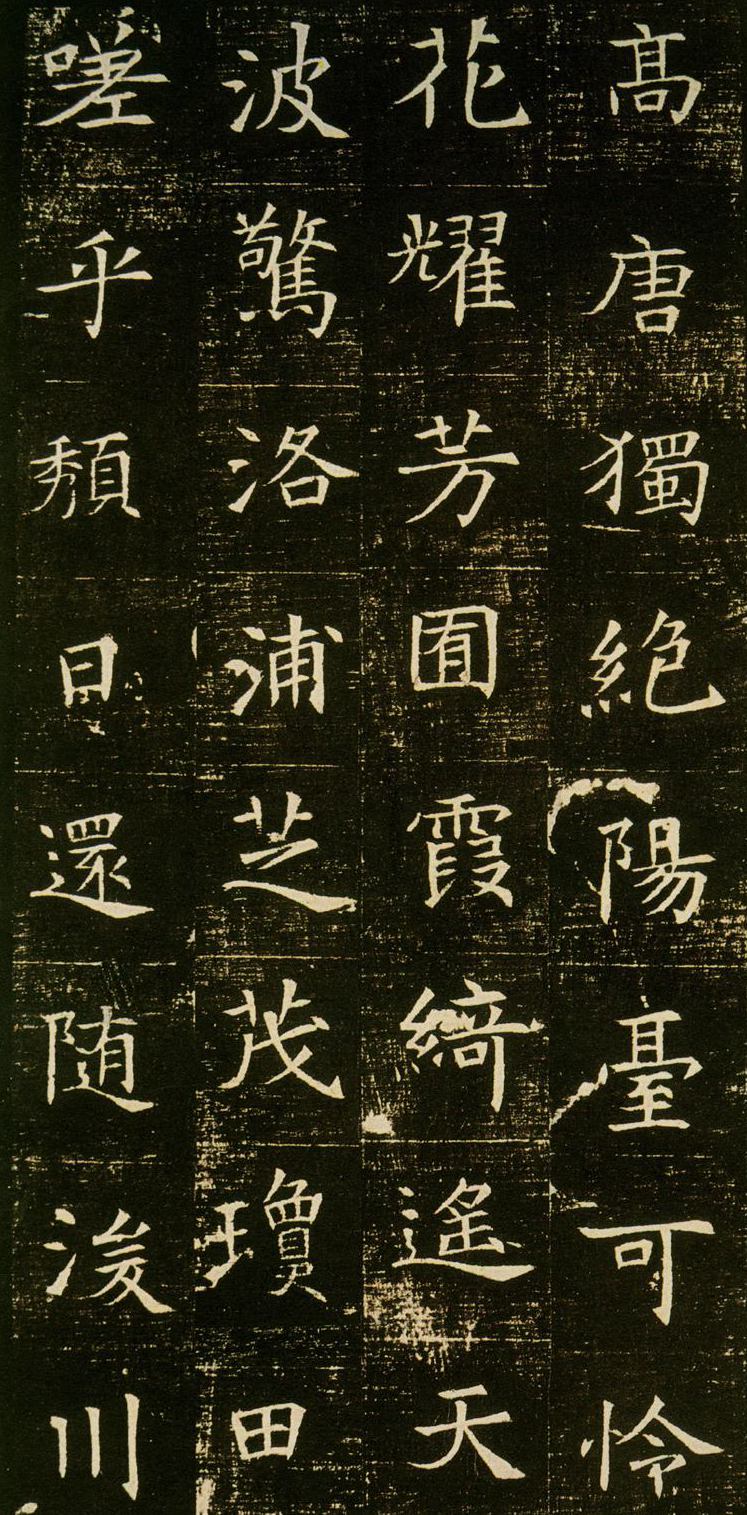 高唐獨絕陽臺可怜
花耀芳囿霞綺遙天
波驚洛浦芝茂瓊田
嗟乎頹日還随浚川